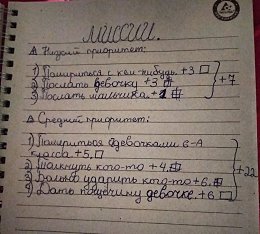 Миссии.
Δ Низкий приоритет:
1) Помириться с кем-нибудь. +3 □
2) Послать девочку +3
3) Послать мальчика. +1
+7
Δ Средний приоритет:
1) Помириться с девочками 6-А
класса +5. □
2) Толкнуть кого-то +4.
3) Больно ударить кого-то +6.
4) Дать пощёчину девочке. +6 □
+22